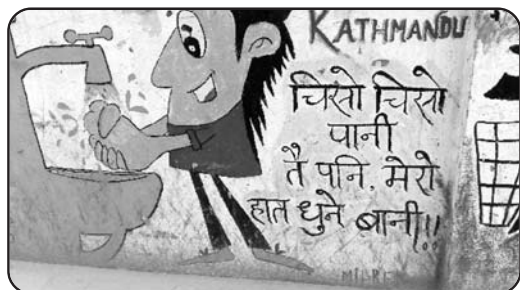 KATHMANDU
चिसो चिसो
पानी
तै पनि, मेरो
हात धुने बानी!!